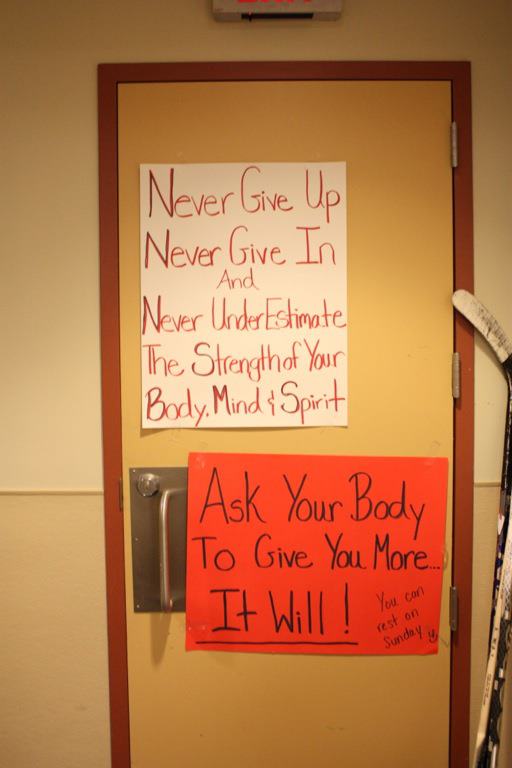 EXIT
Never Give Up
Never Give In
And
Never UnderEstimate
The Strength of Your
Body, Mind & Spirit
Ask Your Body
To Give You More...
It Will!
You can
rest on
Sunday